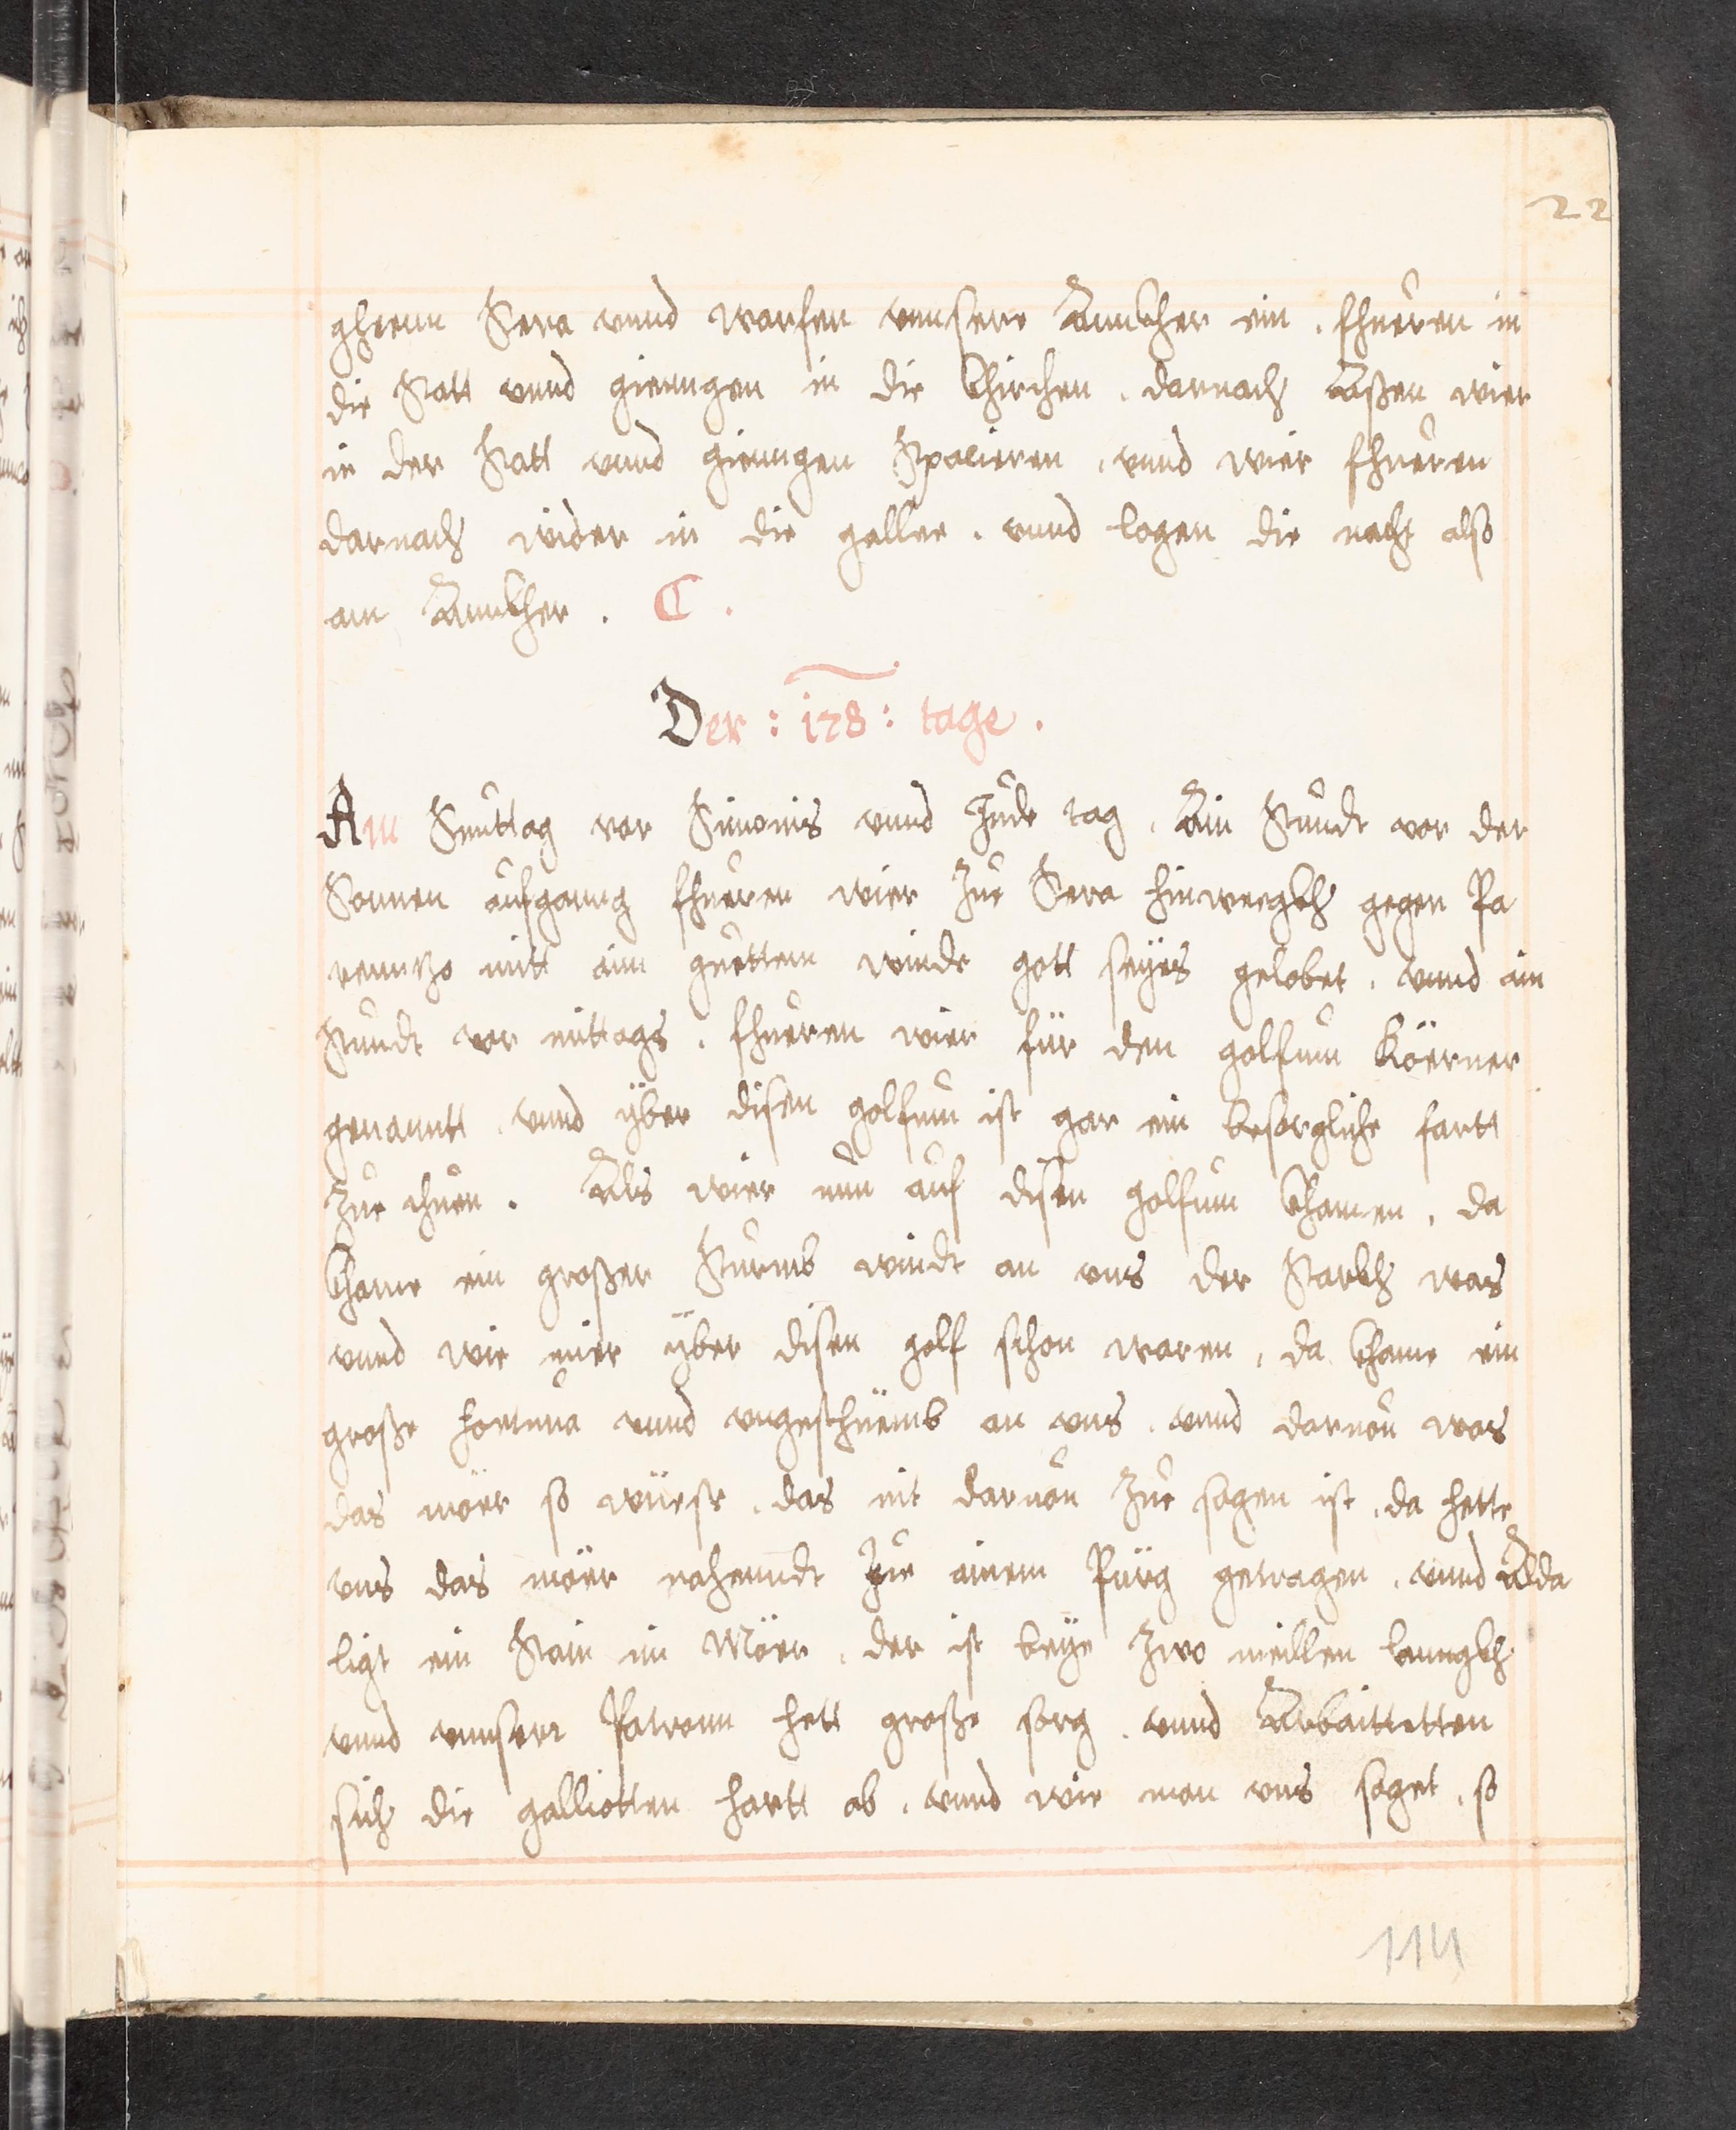 22
ghenn Sera vnnd warfen vnnsere Ännckher ein . fhueren in
die Statt vnnd giengen in die Khirchen . darnach Äßen wier
in der Statt vnnd giengen Spacieren . vnnd wier fhueren
darnach wider in die gallee . vnnd lagen die nacht also
am Ännckher . C .
Der : 178 : tage .
Am Suntag vor Simonis vnnd Jude tag . Ain Stundt vor der
Sonnen aufganng fhueren wier Zue Sera hinwegkh gegen Pa
rennzo mitt ain guettem winde gott seyes gelobet . vnnd ain
Stundt vor mittags . fhueren wier für den golfum Köerner
genanntt . vnnd yber disen golfum ist gar ein besorgliche fartt
Zue thuen . Als wier nun auf disen golfum Khamen . da
Khame ein großer Sturmb windt an vns der Starckh was
vnnd wie mier yber disen golf schon waren . da Khame ein
große fortuna vnnd vngesthüemb an vns . vnnd daruon was
das möer so wüest . das nit daruon Zue sagen ist . da hette
vns das möer nahenndt Zue ainem Pürg getragen . vnnd Alda
ligt ein Stain im Möer . der ist beye Zwo meillen lanngkh
vnnd vnnserr Patronn hett große sorg . vnnd Arbaittetten
sich die galliotten hartt ab . vnnd wie man vns saget . so
114